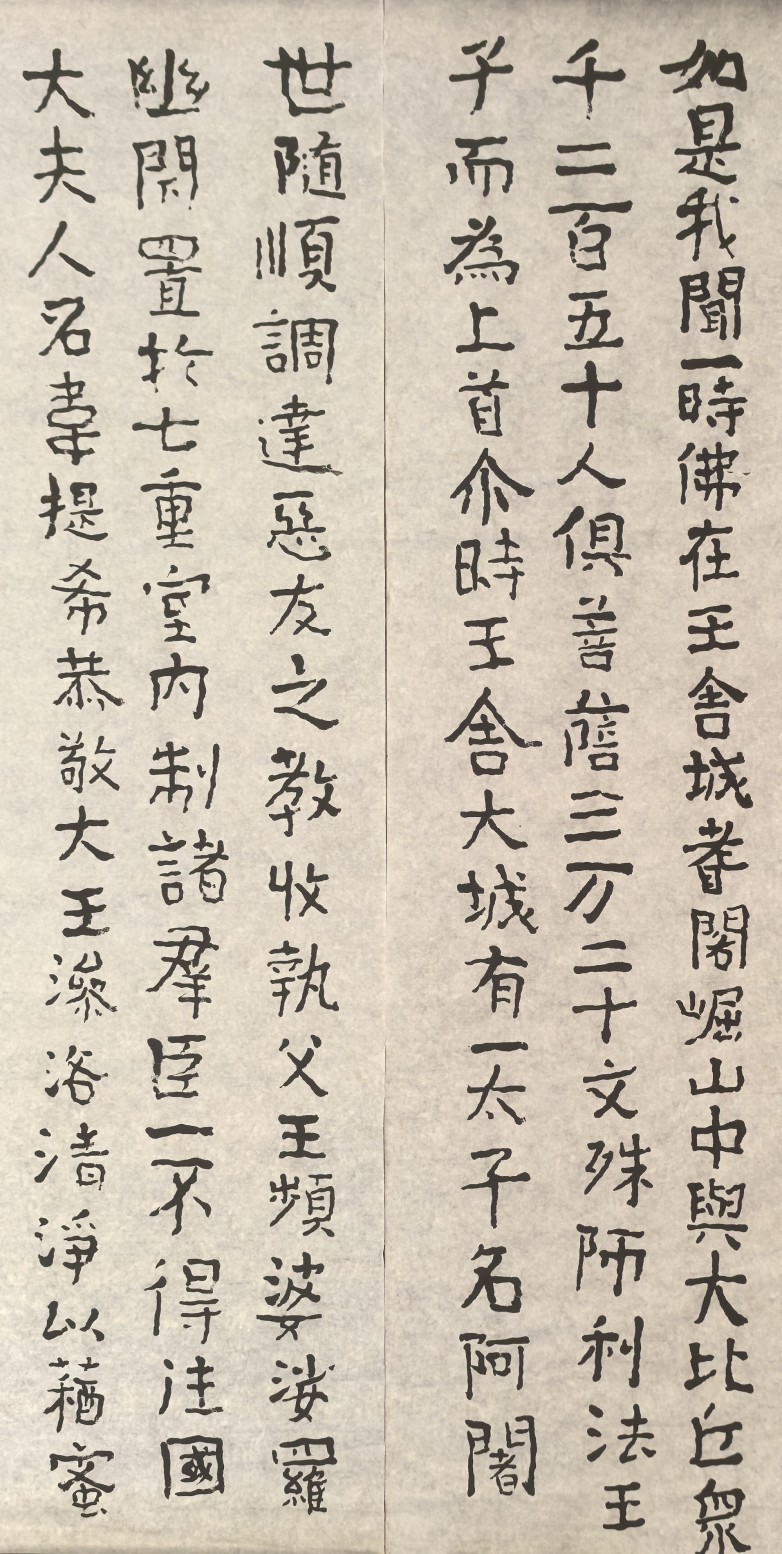 如是我聞一時佛在王舍城耆闍崛山中與大比丘眾
千二百五十人俱菩薩三万二千文殊師利法王
子而為上首尒時王舍大城有一太子名阿闍
世隨順調達惡友之教收執父王頻婆娑羅
幽閉置於七重室內制諸群臣一不得往國
大夫人名韋提希恭敬大王澡浴清淨以蘓蜜